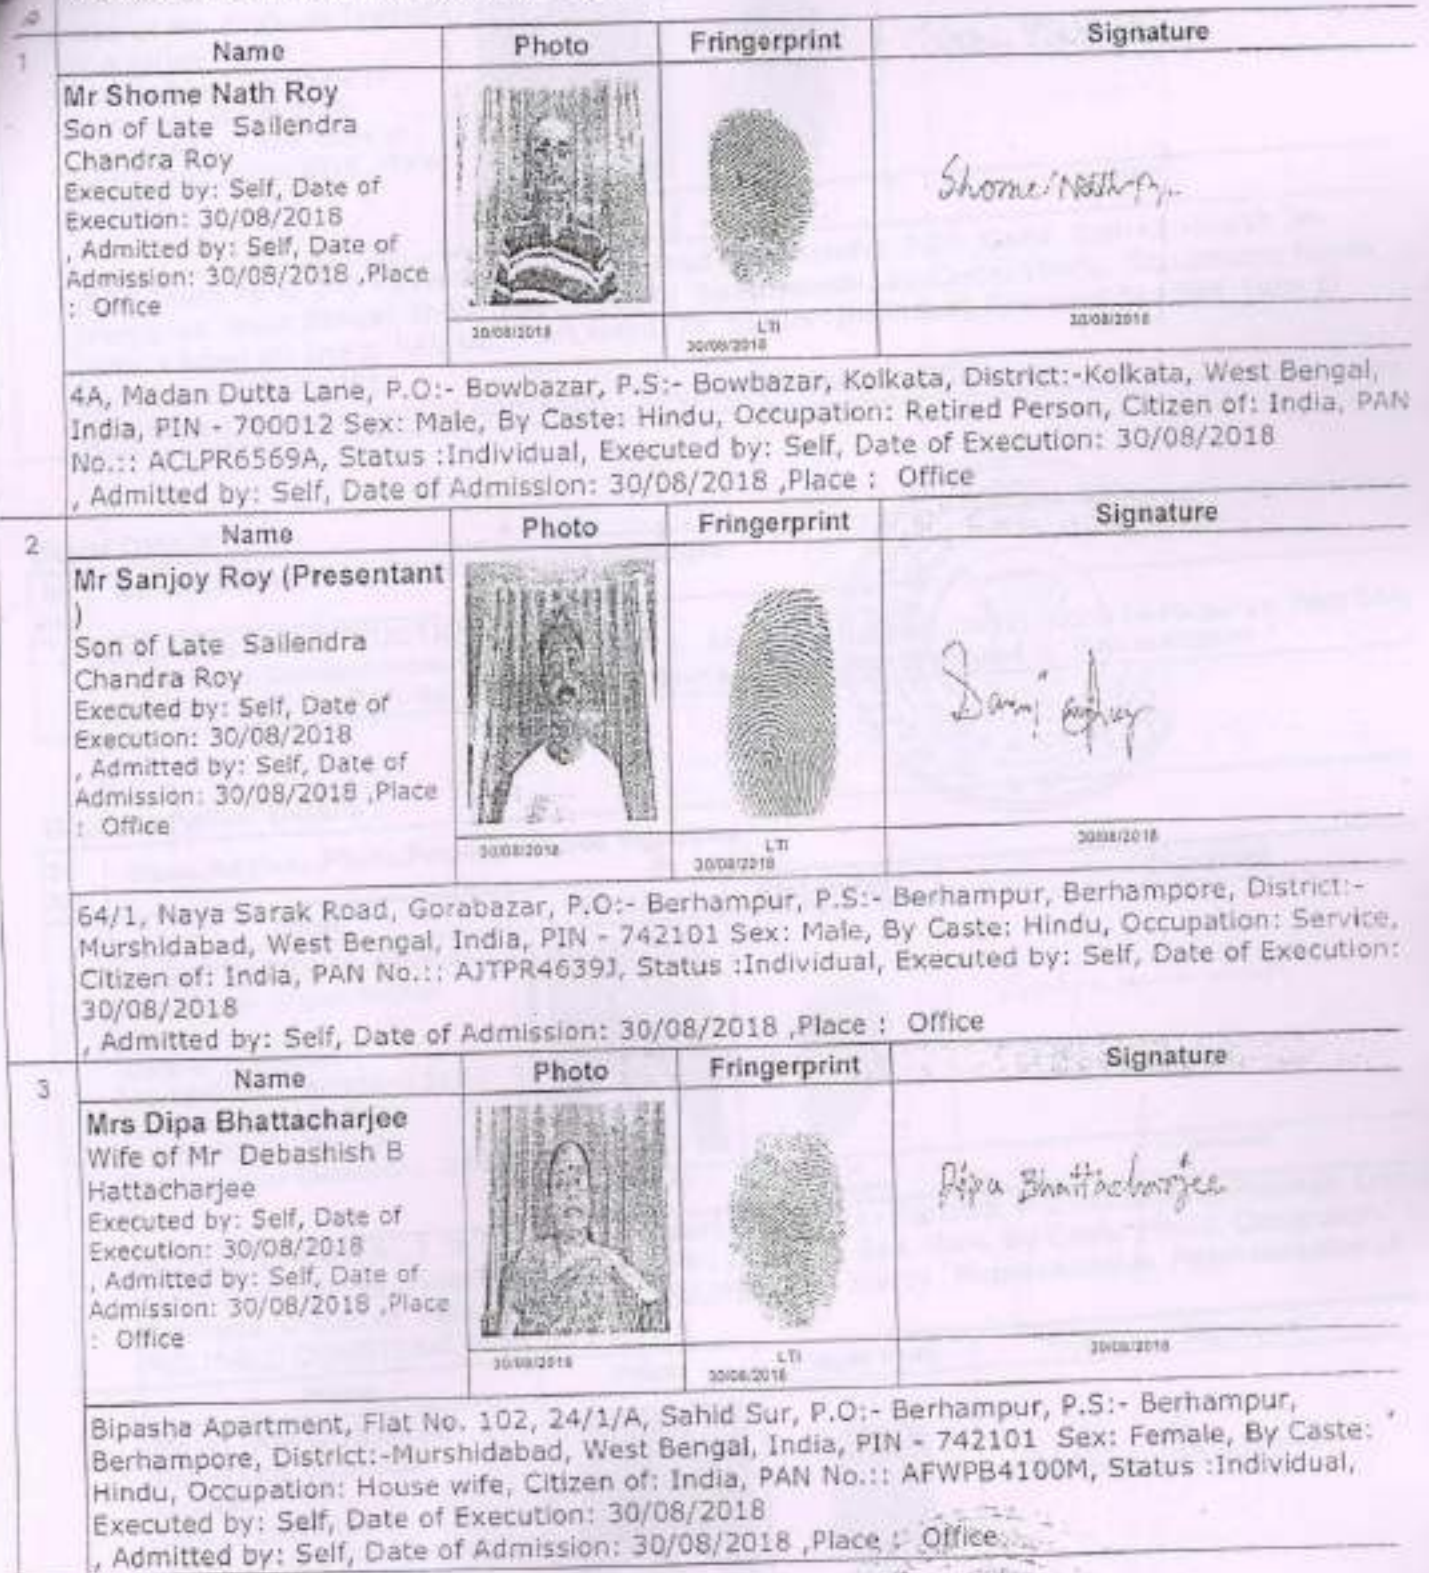 1
Name Photo Fringerprint Signature
Mr Shome Nath Roy
Son of Late Sailendra
Chandra Roy
Executed by: Self, Date of
Execution: 30/08/2018
, Admitted by: Self, Date of
Admission: 30/08/2018 ,Place
: Office
Shome Nath
30/08/2018
LTI
30/08/2018
30/08/2018
4A, Madan Dutta Lane, P.O:- Bowbazar, P.S:- Bowbazar, Kolkata, District:-Kolkata, West Bengal,
India, PIN - 700012 Sex: Male, By Caste: Hindu, Occupation: Retired Person, Citizen of: India, PAN
No.:: ACLPR6569A, Status :Individual, Executed by: Self, Date of Execution: 30/08/2018
, Admitted by: Self, Date of Admission: 30/08/2018 ,Place : Office
2
Name Photo Fringerprint Signature
Mr Sanjoy Roy (Presentant
)
Son of Late Sailendra
Chandra Roy
Executed by: Self, Date of
Execution: 30/08/2018
, Admitted by: Self, Date of
Admission: 30/08/2018 ,Place
: Office
30/08/2018
LTI
30/08/2018
30/08/2018
64/1, Naya Sarak Road, Gorabazar, P.O:- Berhampur, P.S:- Berhampur, Berhampore, District:-
Murshidabad, West Bengal, India, PIN - 742101 Sex: Male, By Caste: Hindu, Occupation: Service,
Citizen of: India, PAN No.:: AJTPR4639J, Status :Individual, Executed by: Self, Date of Execution:
30/08/2018
, Admitted by: Self, Date of Admission: 30/08/2018 ,Place : Office
3
Name Photo Fringerprint Signature
Mrs Dipa Bhattacharjee
Wife of Mr Debashish B
Hattacharjee
Executed by: Self, Date of
Execution: 30/08/2018
, Admitted by: Self, Date of
Admission: 30/08/2018 ,Place
: Office
Dipa Bhattacharjee
30/08/2018
LTI
30/08/2018
30/08/2018
Bipasha Apartment, Flat No. 102, 24/1/A, Sahid Sur, P.O:- Berhampur, P.S:- Berhampur,
Berhampore, District:-Murshidabad, West Bengal, India, PIN - 742101 Sex: Female, By Caste:
Hindu, Occupation: House wife, Citizen of: India, PAN No.:: AFWPB4100M, Status :Individual,
Executed by: Self, Date of Execution: 30/08/2018
, Admitted by: Self, Date of Admission: 30/08/2018 ,Place : Office